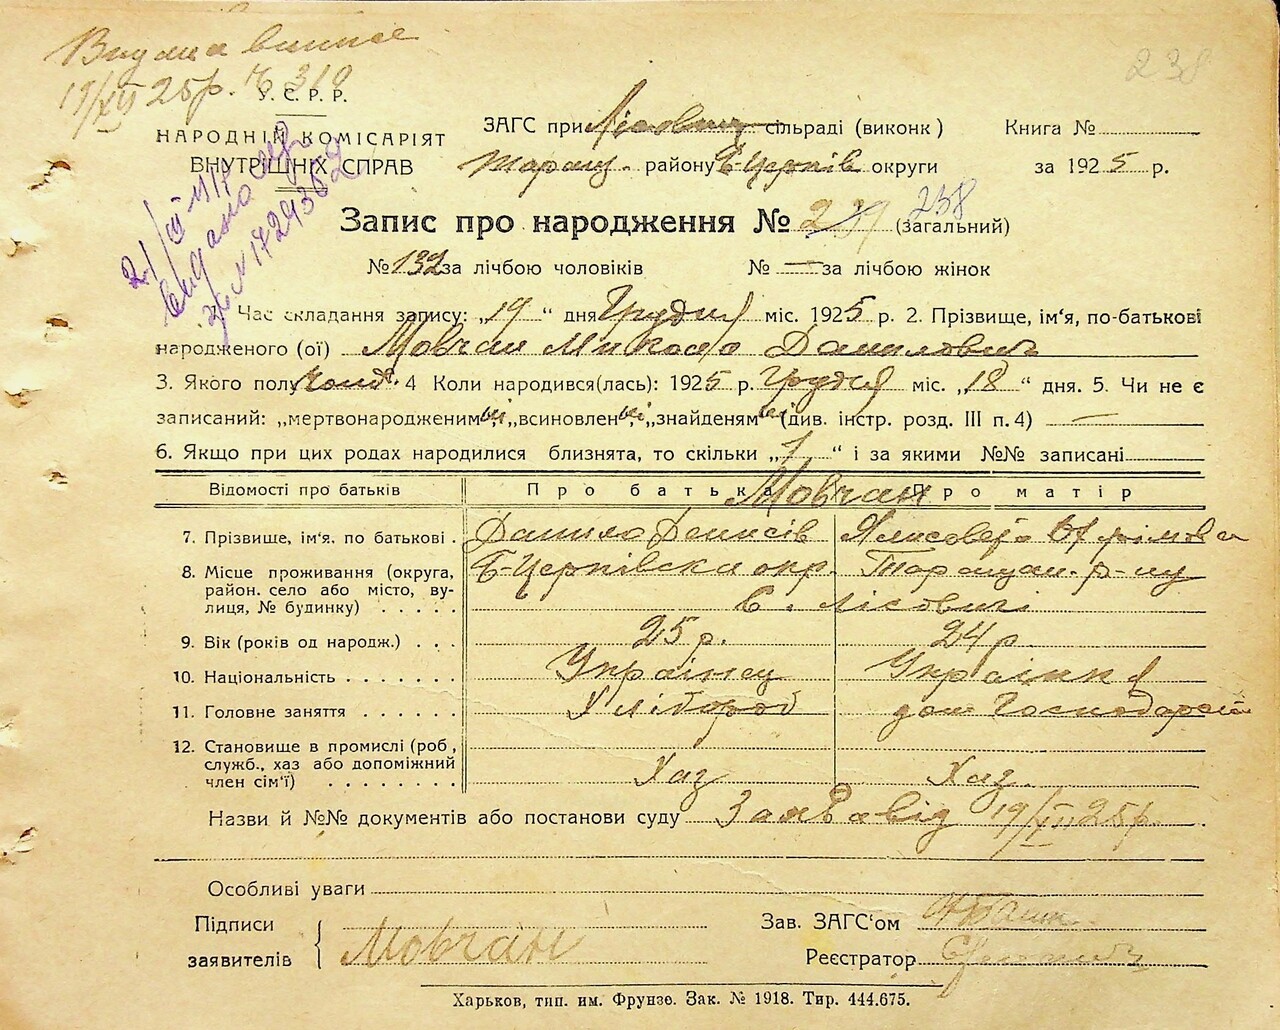 238
19/XII 25р. № 310
У. С. Р. Р.
НАРОДНІЙ КОМІСАРІЯТ
ВНУТРІШНІХ СПРАВ
ЗАГС при Лісович сільраді (виконк) Книга №
Таращ. району Б-Церків округи за 1925 р.
Запис про народження № 239 238 (загальний)
№ 132 за лічбою чоловіків № — за лічбою жінок
Час складання запису: „19“ дня Грудня міс. 1925 р. 2. Прізвище, ім'я, по-батькові
народженого (ої) Мовчан Микола Данилович
3. Якого полу чолов. 4 Коли народився(лась): 1925 р. Грудня міс. „18“ дня. 5. Чи не є
записаний: „мертвонародженим“, „всиновлен“, „знайденям“ (див. інстр. розд. III п. 4) —
6. Якщо при цих родах народилися близнята, то скільки „1“ і за якими №№ записані
Відомості про батьків Про батька Про матір
Мовчан
7. Прізвище, ім'я, по батькові . Данило Денисів
8. Місце проживання (округа, район. село або місто, вулиця, № будинку) . . . . . Б-Церківська окр. Таращан. р-ну
с. Лісовичі
9. Вік (років од народж.) . . . 25 р. 24 р
10. Національність . . . . . . . Українец Українка
11. Головне заняття . . . . . . Хлібороб дом Господарст
12. Становище в промислі (роб, служб., хаз або допоміжний член сім'ї) . . . . . . . . Хаз Хаз.
Назви й №№ документів або постанови суду 19/XII 25р.
Особливі уваги
Підписи
заявителів Мовчан
Зав. ЗАГС'ом
Реєстратор
Харьков, тип. им. Фрунзе. Зак. № 1918. Тир. 444.675.